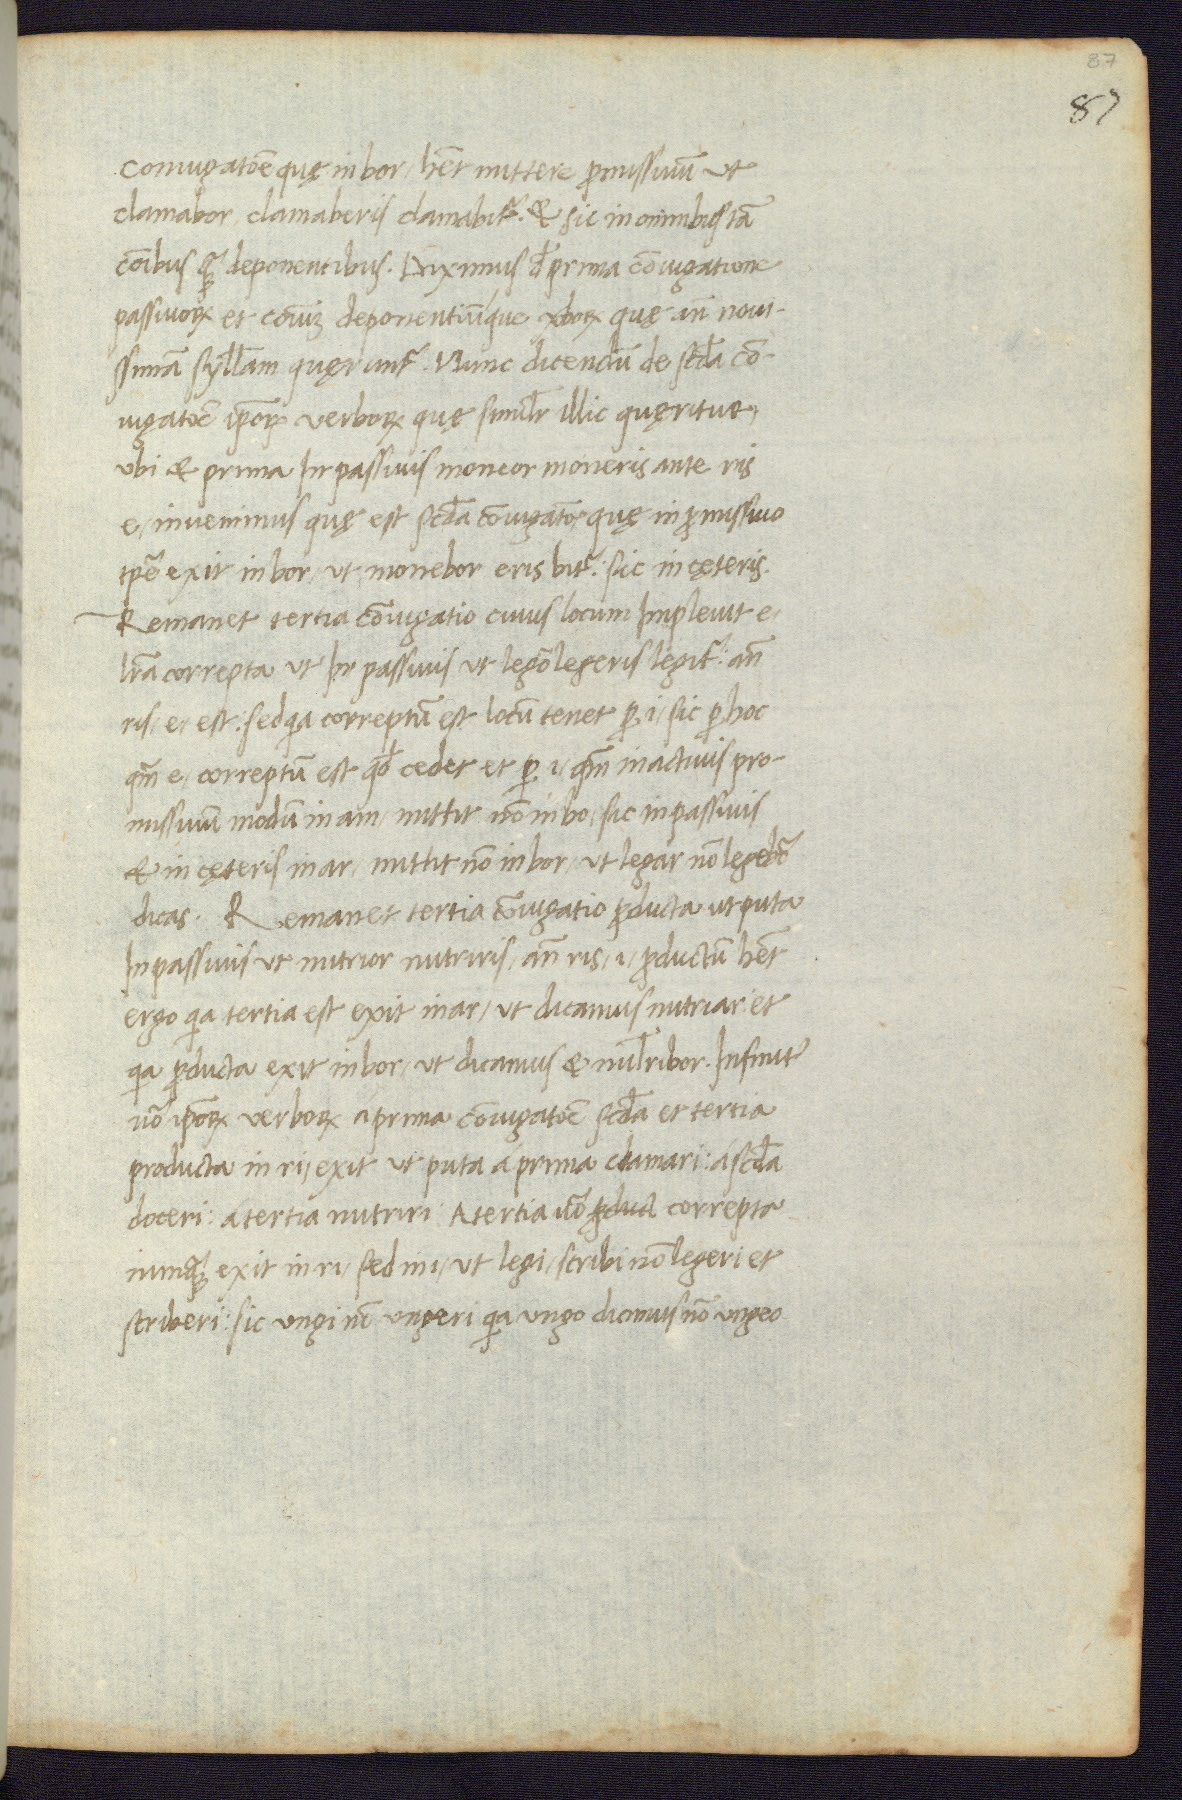 87
87
coniugatōe quę in bor, hēt mittere ꝓmissiuū ut
clamabor, clamaberis clamabit᷑. & sic in omnibus tā
cōibus q̄ꝫ deponentibus. Diximus d̄ prima cōiugatione
passiuoꝝ et cōiuꝫ deponentiūque ūboꝝ quę añ noui-
ssimā syllam quęrunt᷑. Nunc dicendū de scd̄a cō-
iugatōe ip̄oꝝ verboꝝ quę simil̄r illic quęritur,
ubi & prima In passiuis moneor moneris ante ris
e, inuenimus quę est scd̄a cōiugatō, quę in ꝓmissiuo
tp̄re exit in bor, ut monebor eris bit᷑: sic in cęteris.
Remanet tertia cōiugatio cuius locum Impleuit e,
lr̄a correpta ut In passiuis ut legor legeris legit᷑: añ
ris, e, est: sed qia correptū est locū tenet ꝑ i, sic ꝑ hoc
qm̄ e, correptū est qd̄ cedet et ꝑ i, qm̄ in actiuis pro-
missiuū modū in am, mittit nō in bo, sic in passiuis
& in cęteris in ar, mittit nō in bor, ut legar nō legebor
dicas. Remanet tertia cōiugatio ꝓducta ut puta
In passiuis ut nutrior nutriris, añ ris, i, ꝓductū hēt
ergo qia tertia est exit in ar, ut dicamus nutriar: et
qia ꝓducta exit in bor, ut dicamus & nutribor. Infinit
uō ip̄oꝝ verboꝝ á prima cōiugatōe scd̄a et tertia
producta in ri, exit ut puta á prima clamari: á scd̄a
doceri: á tertia nutriri: A tertia uō ꝓduct correpta
nunq̄ꝫ exit in ri, sed in i, ut legi, scribi nō legeri et
scriberi: sic ungi nō ungeri qia ungo dicimus nō ungeo